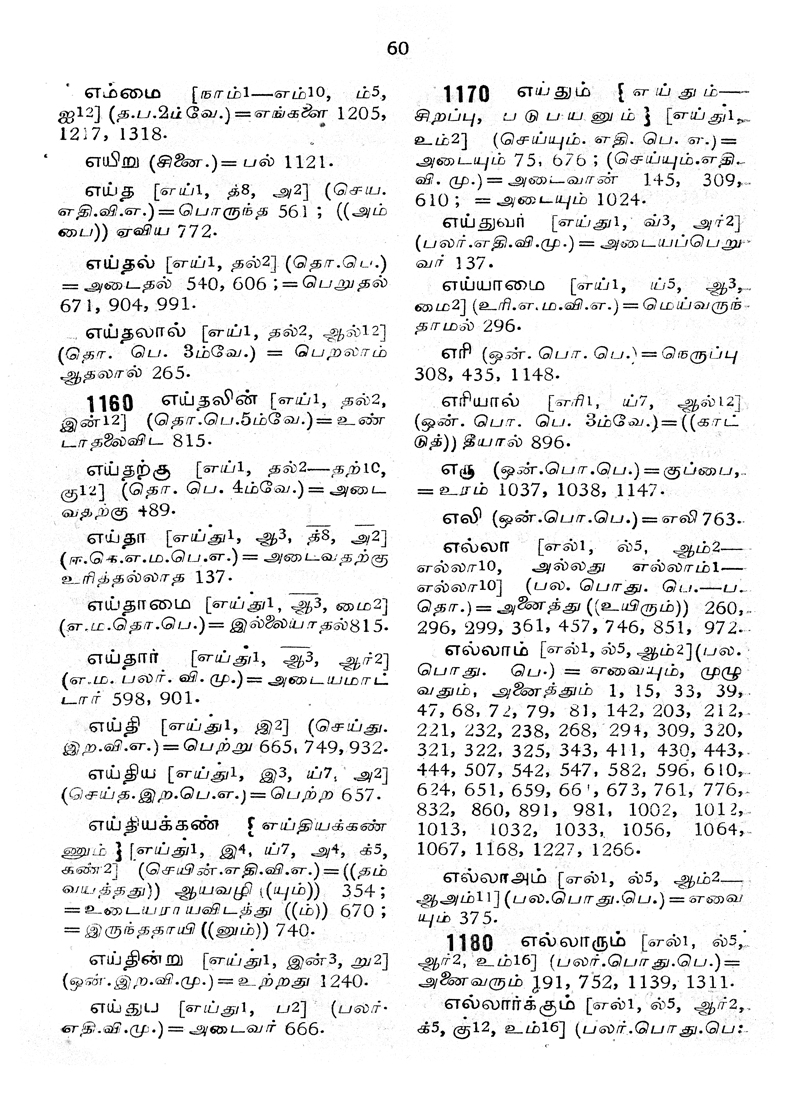 60
எம்மை [நாம்1—எம்10, ம்5,
ஐ12] (த.ப.2ம்வே.)=எங்களை 1205,
1217, 1318.
எயிறு (சினை.)= பல் 1121.
எய்த [எய்1, த்8, அ2] (செய.
எதி.வி.எ.)=பொருந்த 561 ; ((அம்
பை)) ஏவிய 772.
எய்தல் [எய்1, தல்2] (தொ.பெ.)
=அடைதல் 540, 606 ;=பெறுதல்
671, 904, 991.
எய்தலால் [எய்1, தல்2, ஆல்12]
(தொ. பெ. 3ம்வே.) = பெறலாம்
ஆதலால் 265.
1160 எய்தலின் [எய்1, தல்2,
இன்12] (தொ.பெ.5ம்வே.)=உண்
டாதலைவிட 815.
எய்தற்கு [எய்1, தல்2—தற்10,
கு12] (தொ. பெ. 4ம்வே.)=அடை
வதற்கு 489.
எய்தா [எய்து1, ஆ3, த்8, அ2]
(ஈ.கெ.எ.ம.பெ.எ.)=அடைவதற்கு
உரித்தல்லாத 137.
எய்தாமை [எய்து1, ஆ3, மை2]
(எ.ம.தொ.பெ.)=இல்லையாதல்815.
எய்தார் [எய்து1, ஆ3, ஆர்2]
(எ.ம. பலர். வி.மு.)=அடையமாட்
டார் 598, 901.
எய்தி [எய்து1, இ2] (செய்து.
இற.வி.எ.)=பெற்று 665, 749, 932.
எய்திய [எய்து1, இ3, ய்7, அ2]
(செய்த.இற.பெ.எ.)=பெற்ற 657.
எய்தியக்கண் { எய்தியக்கண்
ணும் } [எய்து1, இ4, ய்7, அ4, க்5,
கண்2] (செயின்.எதி.வி.எ.)=((தம்
வயத்தது)) ஆயவழி ((யும்)) 354 ;
=உடையராயவிடத்து ((ம்)) 670 ;
=இருந்ததாயி ((னும்)) 740.
எய்தின்று [எய்து1, இன்3, று2]
(ஒன்.இற.வி.மு.)=உற்றது 1240.
எய்துப [எய்து1, ப2] (பலர்.
எதி.வி.மு.)=அடைவர் 666.
1170 எய்தும் { எய்தும்—
சிறப்பு, படுபயனும் } [எய்து1,
உம்2] (செய்யும். எதி. பெ. எ.)=
அடையும் 75, 676 ; (செய்யும்.எதி.
வி. மு.)=அடைவான் 145, 309,
610 ; =அடையும் 1024.
எய்துவர் [எய்து1, வ்3, அர்2]
(பலர்.எதி.வி.மு.)=அடையப்பெறு
வர் 137.
எய்யாமை [எய்1, ய்5, ஆ3,
மை2] (உரி.எ.ம.வி.எ.)=மெய்வருந்
தாமல் 296.
எரி (ஒன். பொ. பெ.)=நெருப்பு
308, 435, 1148.
எரியால் [எரி1, ய்7, ஆல்12]
(ஒன். பொ. பெ. 3ம்வே.)=((காட்
டுத்)) தீயால் 896.
எரு (ஒன்.பொ.பெ.)=குப்பை,
=உரம் 1037, 1038, 1147.
எலி (ஒன்.பொ.பெ.)=எலி 763.
எல்லா [எல்1, ல்5, ஆம்2—
எல்லா10, அல்லது எல்லாம்1—
எல்லா10] (பல. பொது. பெ.—ப.
தொ.)=அனைத்து ((உயிரும்)) 260,
296, 299, 361, 457, 746, 851, 972.
எல்லாம் [எல்1, ல்5, ஆம்2](பல.
பொது. பெ.) = எவையும், முழு
வதும், அனைத்தும் 1, 15, 33, 39,
47, 68, 72, 79, 81, 142, 203, 212,
221, 232, 238, 268, 294, 309, 320,
321, 322, 325, 343, 411, 430, 443,
444, 507, 542, 547, 582, 596, 610,
624, 651, 659, 673, 761, 776,
832, 860, 891, 981, 1002, 1012,
1013, 1032, 1033, 1056, 1064,
1067, 1168, 1227, 1266.
எல்லாஅம் [எல்1, ல்5, ஆம்2—
ஆஅம்11] (பல.பொது.பெ.)=எவை
யும் 375.
1180 எல்லாரும் [எல்1, ல்5,
ஆர்2, உம்16] (பலர்.பொது.பெ.)=
அனைவரும் 191, 752, 1139, 1311.
எல்லார்க்கும் [எல்1, ல்5, ஆர்2,
க்5, கு12, உம்16] (பலர்.பொது.பெ.